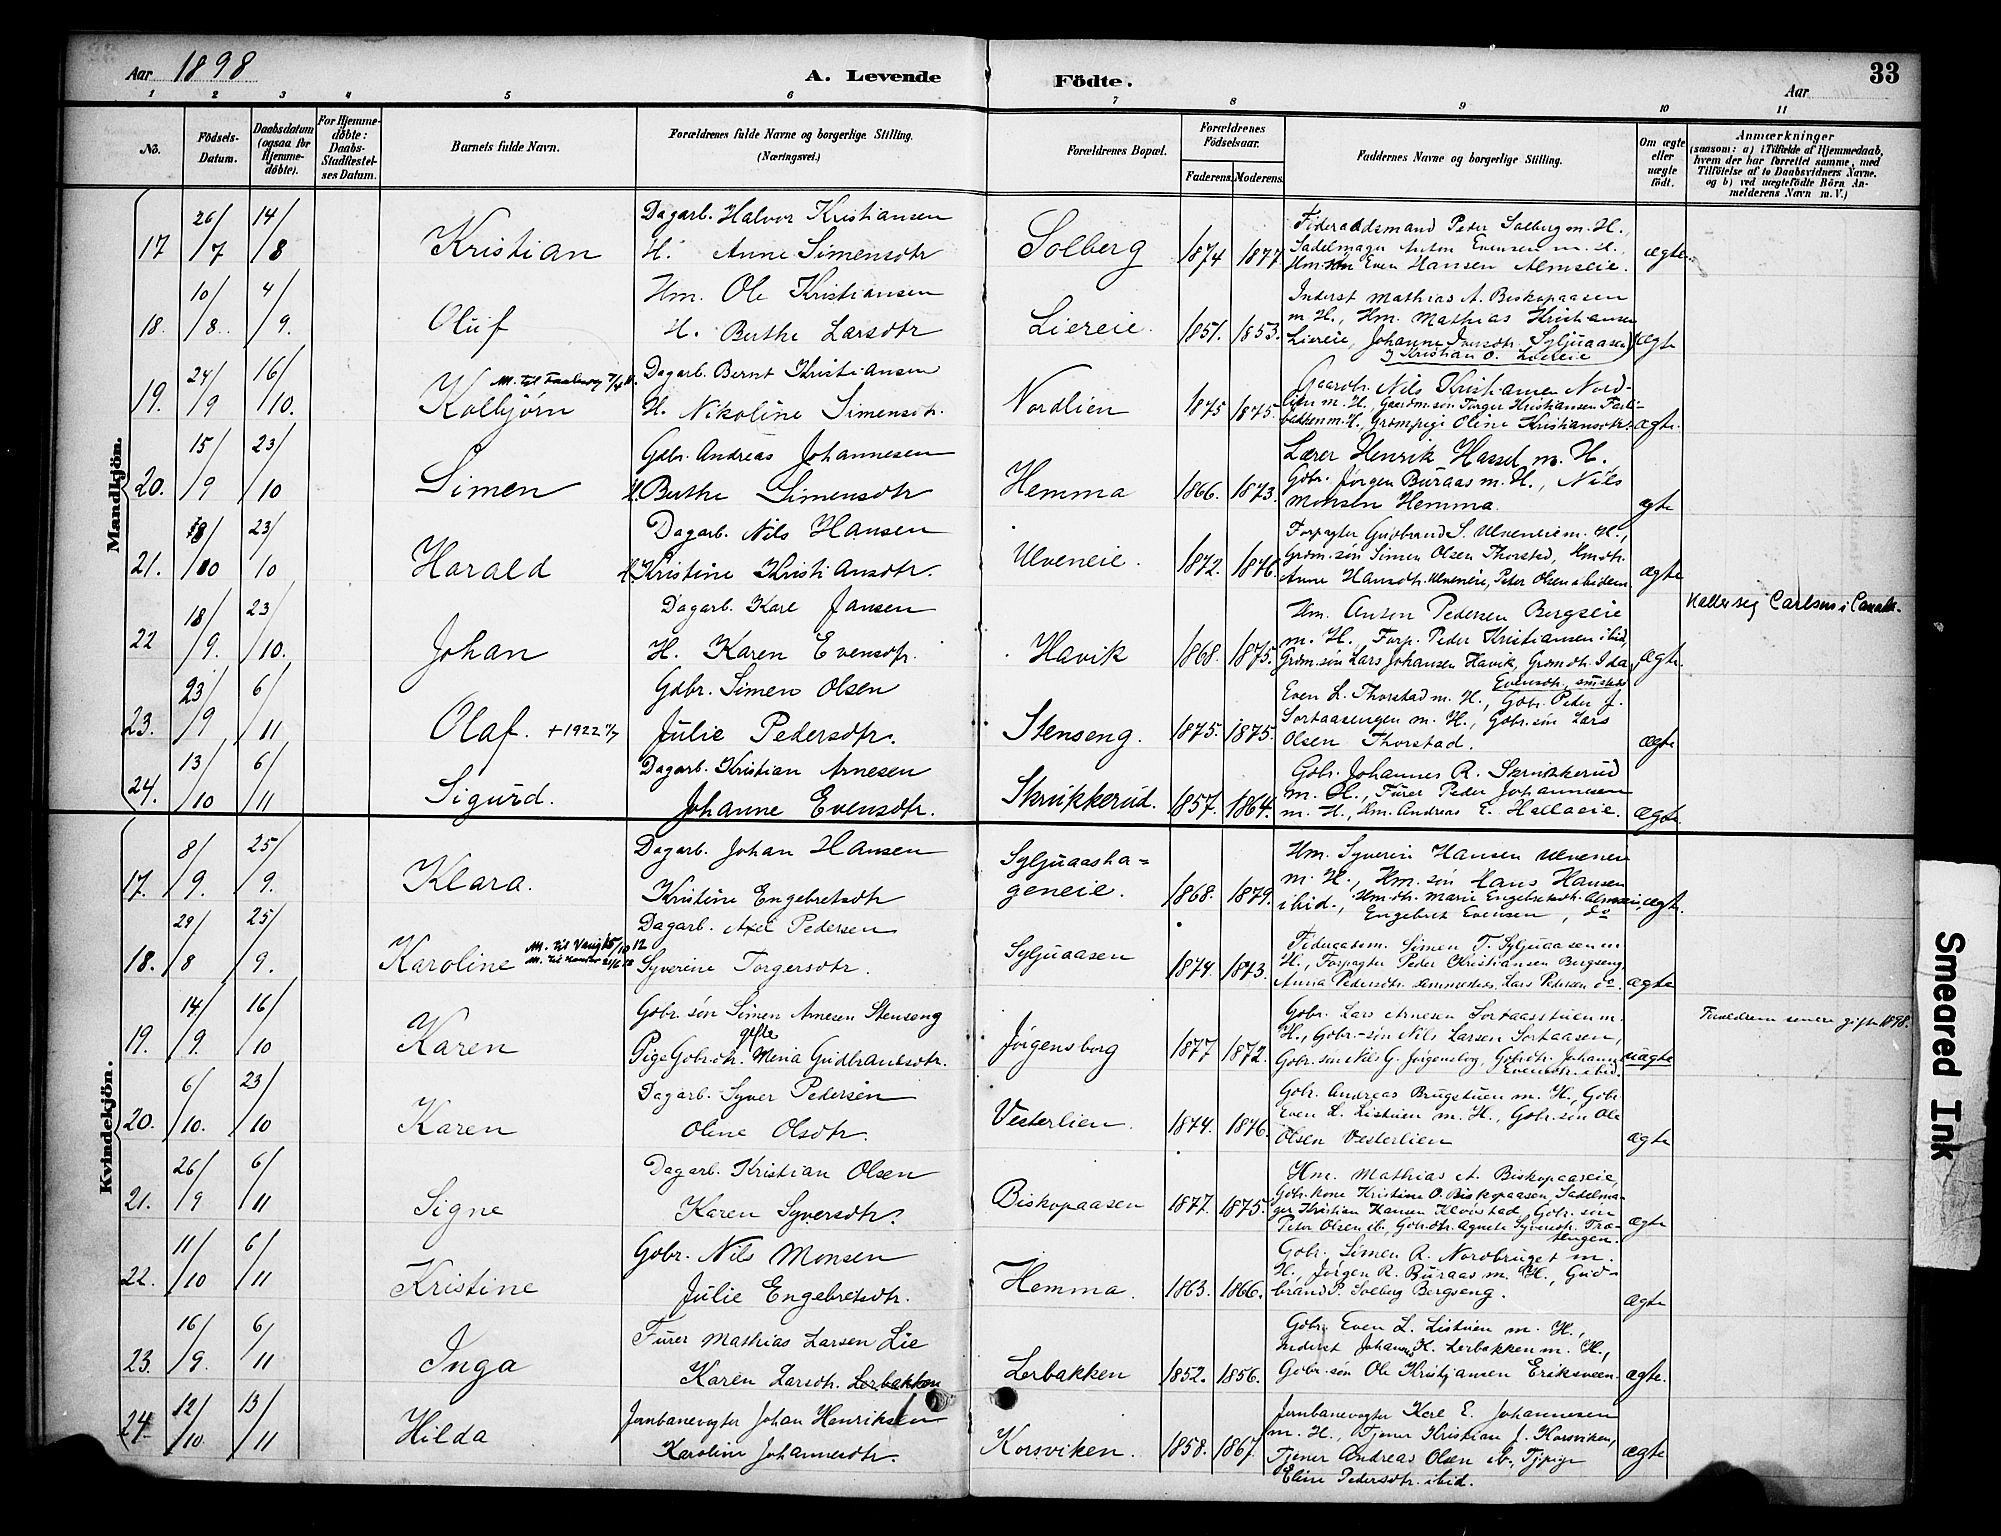 Aar 1898
A. Levende Födte.
33
Aar
1 2 3 4 5 6 7 8 9 10 11
No.
Födsels-Datum.
Daabsdatum (ogsaa for Hjemmedöbte).
For Hjemmedöbte: Daabs-Stadfæstelses Datum.
Barnets fulde Navn.
Forældrenes fulde Navne og borgerlige Stilling. (Næringsvei.)
Forældrenes Bopæl.
Forældrenes Födselsaar.
Faderens. Moderens.
Faddernes Navne og borgerlige Stilling.
Om ægte eller uægte födt.
Anmærkninger (saasom: a) i Tilfælde af Hjemmedaab, hvem der har forrettet samme, med Tilföielse af to Daabsvidners Navne, og b) ved uægtefödte Börn Anmelderens Navn m. V.)
Mandkjön.
17 26/7 14/8 Kristian
Dagarb. Halvor Kristiansen
H. Anne Simensdtr
Solberg 1874 1877
Föderaadsmand Peter Solberg m. H.,
Sadelmager Anton Evensen m. H.
Hm. søn Even Hansen Almseie.
ægte
18. 10/8 4/9. Oluf
Hm. Ole Kristiansen
H. Berthe Larsdtr
Liereie. 1851. 1853.
Inderst Mathias A. Biskopaasen
m. H., Hm. Mathias Kristiansen
Liereie, Johanne Iversdtr. Syljuaasen
& Kristian O. Liereie
ægte
19. 24/9 16/10. Kolbjörn
Dagarb. Bernt Kristiansen
H. Nikoline Simensdtr.
Nordlien 1875 1875.
Gaardbr. Nils Kristiansen Nord-
lien m. H. Gaardm.søn Torger Kristiansen
m. H., Grdmpige Oline Kristiansdtr.
ægte.
20. 15/9 23/10 Simen
Gdbr. Andreas Johannesen
H. Berthe Simensdtr
Hemma 1866. 1873.
Lærer Henrik Hassel m. H.
Gdbr. Jörgen Buraas m. H., Nils
Monsen Hemma.
ægte
21. 8/10 23/10 Harald
Dagarb. Nils Hansen
H. Kristine Kristiansdtr.
Ulveneie. 1872. 1876.
Forpagter Gudbrand S. Ulveneie m. H.,
Grdm. søn Simen Olsen Thorstad, Hmdtr.
Anne Hansdtr. Ulveneie, Peter Olsen ibidem
ægte
22 18/9. 23/10. Johan
Dagarb. Karl Jansen
H. Karen Evensdtr.
Havik 1868. 1875.
Hm. Anton Pedersen Bergseie
m. H. Forp. Peder Kristiansen ibid,
Grdm. søn Lars Johansen Havik, Grdmdtr. Ida
Evensdtr.
ægte.
Kaller sig Carlsen i Canada.
23. 23/9 6/11 Olaf. + 1922
Gdbr. Simen Olsen
Julie Pedersdtr.
Stenseng. 1875. 1875.
Even L. Thorstad m. H., Gdbr. Peder J.
Sortaasengen m. H., Gdbr. søn Lars
Olsen Thorstad.
ægte
24. 13/10 6/11 Sigurd.
Dagarb. Kristian Arnesen
Johanne Evensdtr.
Skrukkerud. 1857. 1864.
Gdbr. Johannes R. Skrukkerud
m. H., Furer Peder Johannesen
m. H., Hm. Andreas E. Hallaeie.
ægte
Kvindekjön.
17. 8/9. 25/9. Klara.
Dagarb. Johan Hansen
Kristine Engebretsdtr
Syljuaasha-
geneie. 1868. 1879.
Hm. Syverin Hansen Ulveneie
m. H., Hm. søn Hans Hansen
ibid., Hm. dtr. Marie Engebretsdtr. Almseie,
Engebret Evensen, do
ægte.
18. 29/8 25/9. Karoline
Dagarb. Axel Pedersen
Syverine Torgersdtr.
Syljuaasen 1874. 1873.
Föderaadsm. Simen T. Syljuaasen m.
H., Forpagter Peder Kristiansen Bergseng,
Anna Pedersdtr. sammesteds, Lars Pedersen do.
ægte
19. 14/9. 16/10 Karen
Gdbr. søn Simen Arnesen Stenseng
Pige Gdbr.dtr. Maria Gudbrandsdtr.
gifte
Jörgensborg 1877 1872.
Gdbr. Lars Arnesen Sortaasstuen m.
H., Gdbr.-søn Nils Larsen Sortaasen,
Gdbr. søn Nils G. Jörgensborg, Gdbrdtr. Johanne
Evensdtr. ibid.
uægte
Forældrene senere gifte 1898.
20. 6/10. 23/10 Karen
Dagarb. Syver Pedersen
Oline Olsdtr.
Vesterlien. 1874. 1876.
Gdbr. Andreas Brugstuen m. H., Gdbr.
Even L. Listuen m. H., Gdbr. søn Ole
Olsen Vesterlien
ægte
21. 26/9 6/11 Signe
Dagarb. Kristian Olsen
Karen Syversdtr.
Biskopaasen 1877. 1875.
Hm. Mathias A. Biskopaaseie,
Gdbr. kone Kristine O. Biskopaasen, Sadelma-
ger Kristian Hansen Klövstad, Gdbr. søn
Peter Olsen ib. Gdbrdtr. Agnete Syversdtr. Træ-
tengen.
ægte
22. 11/10 6/11 Kristine
Gdbr. Nils Monsen
Julie Engebretsdtr.
Hemma. 1863. 1866.
Gdbr. Simen R. Nordbruget m.
H., Jörgen R. Buraas m. H., Gud-
brand P. Solberg Bergseng.
ægte
23. 16/9. 6/11 Inga
Furer Mathias Larsen Lie
Karen Larsdtr. Lerbakken
Lerbakken 1852. 1856.
Gdbr. Even L. Listuen m. H.,
Inderst Johannes H. Lerbakken m. H.,
Gdbr. søn Ole Kristiansen Eriksveen.
ægte.
24. 12/10. 13/11 Hilda
Jernbanevogter Johan Henriksen
Karoline Johannesdtr.
Korsviken. 1858. 1867.
Jernbanevogter Karl E. Johannesen
m. H., Tjener Kristian J. Korsviken,
Tjener Andreas Olsen ib., Tjpige
Eline Pedersdtr. ibid.
ægte
Smeared Ink